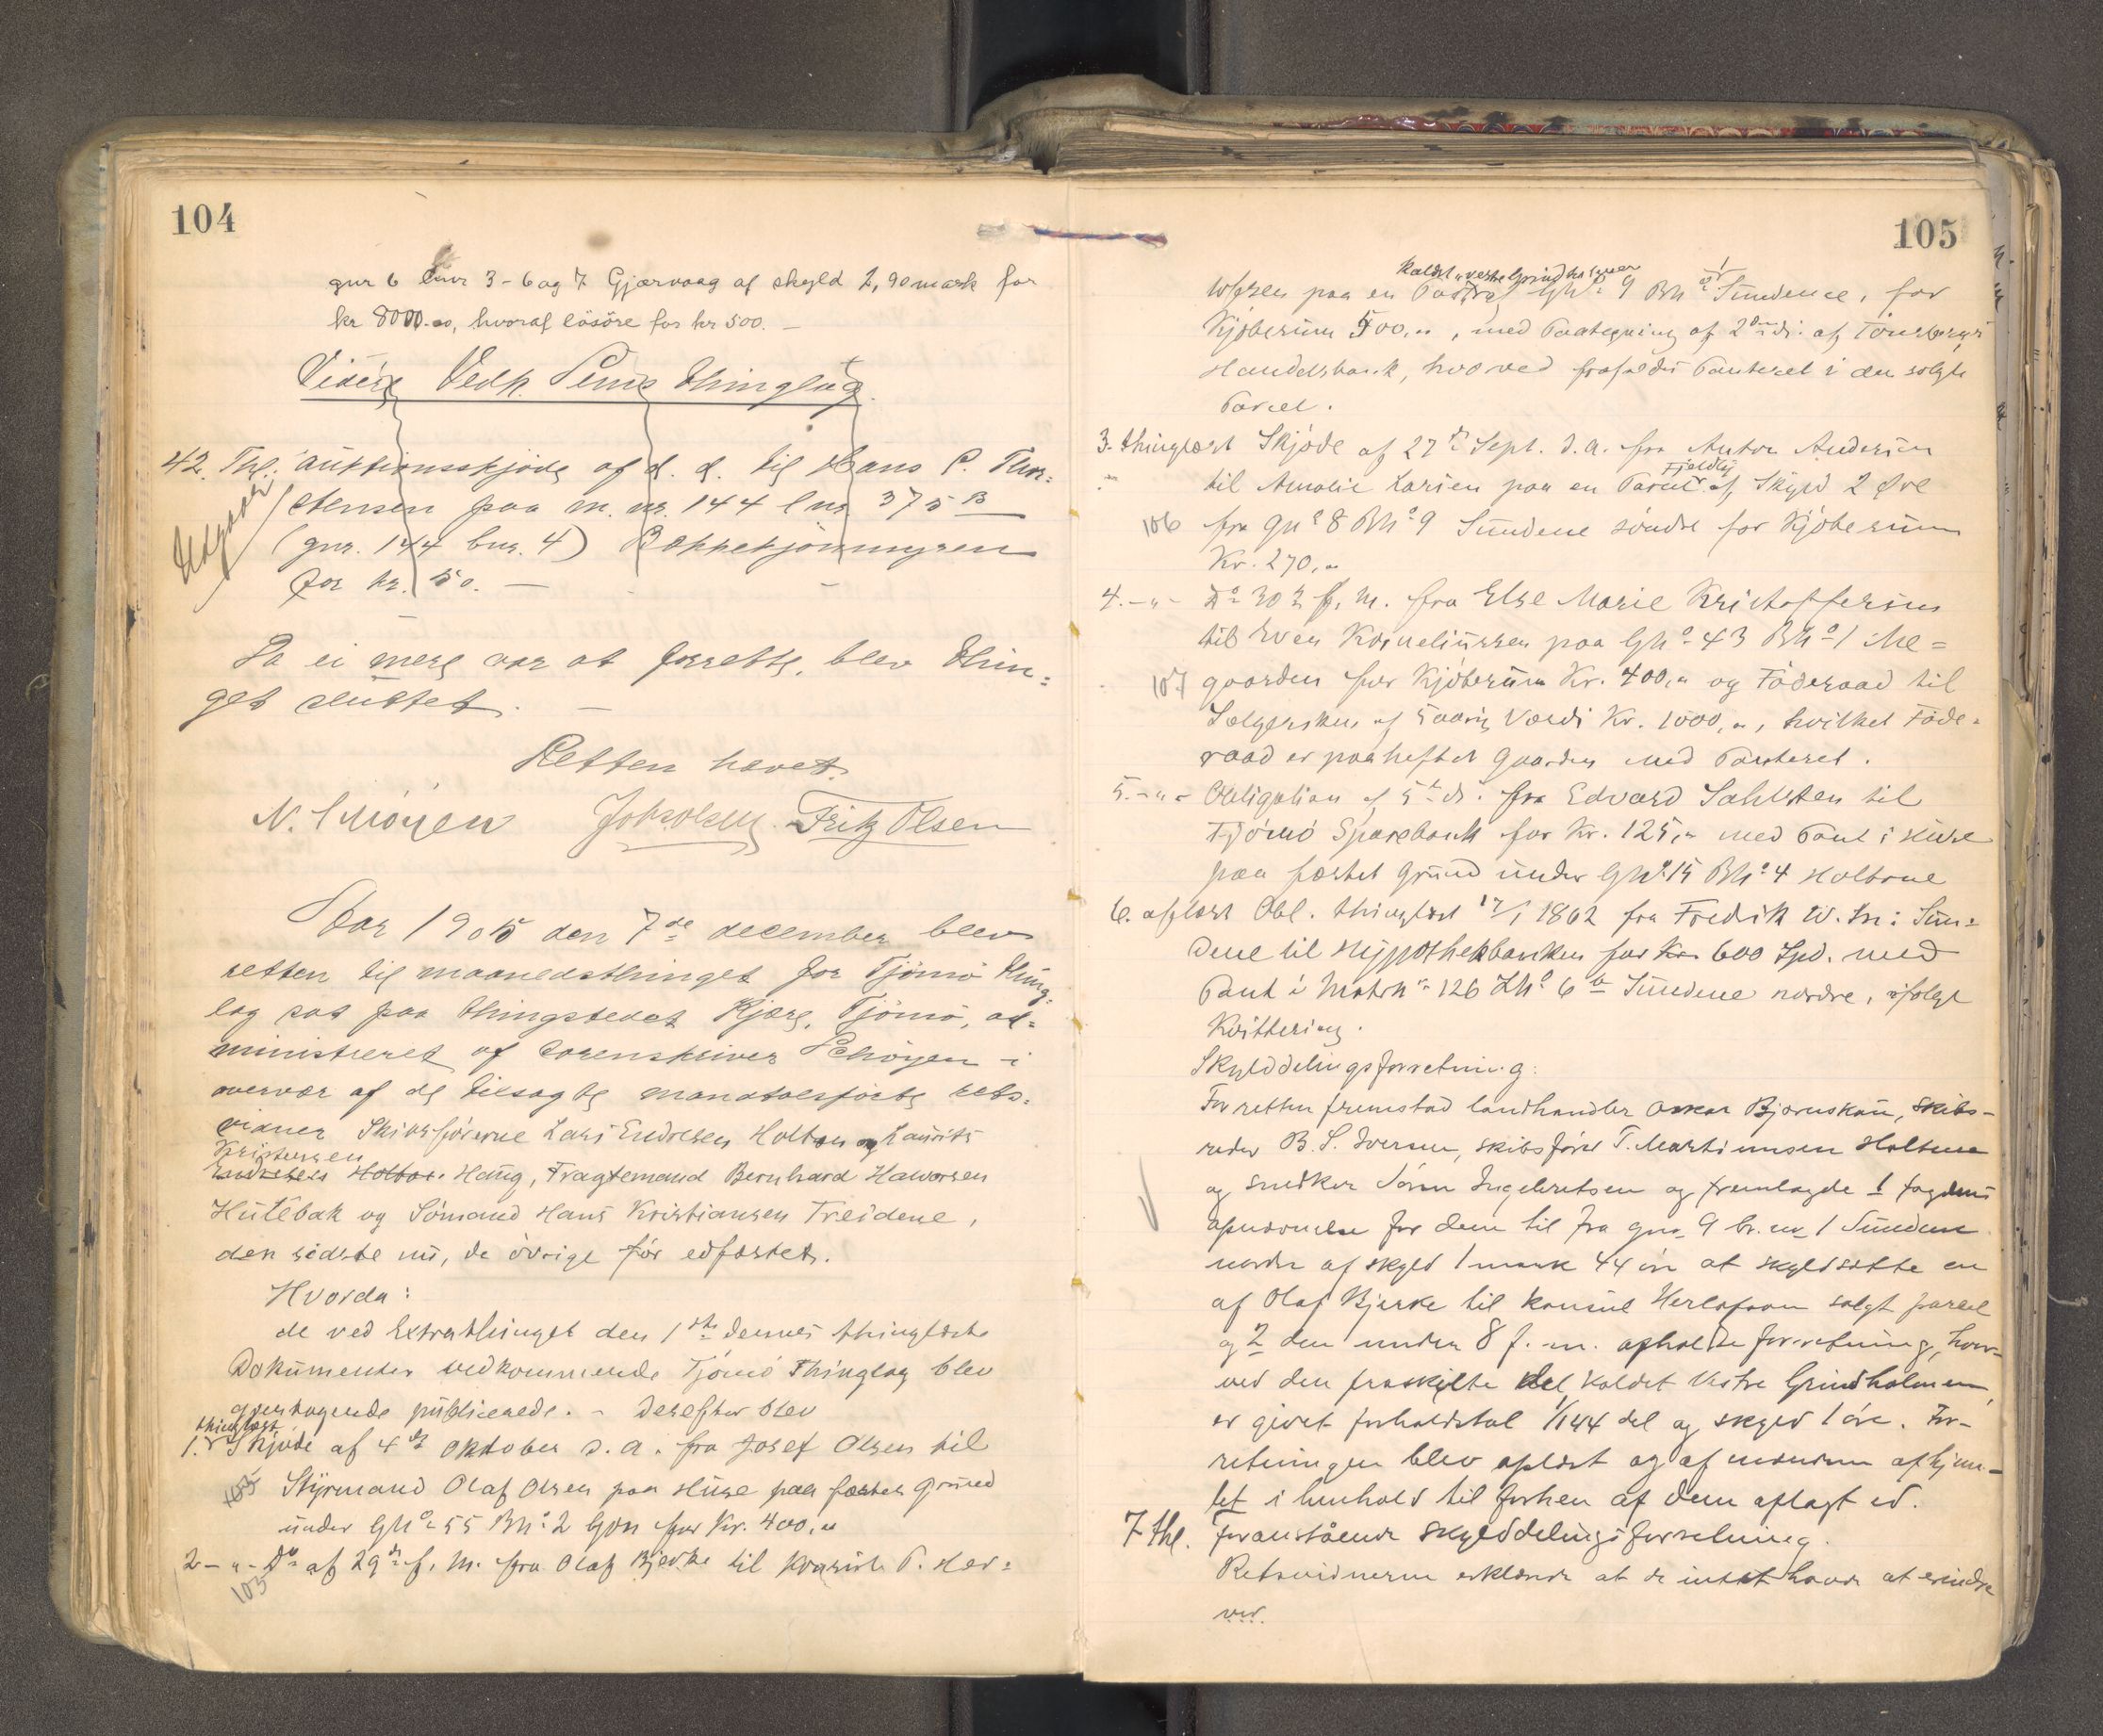 104
gnr 6 bnr 3-6 og 7 Gjærvaag af skyld 2,90 mark for
kr 8000.00, hvoraf lösöre for kr 500. –
Videre Vedk. Sems thinglag.
42. Thl. auktionsskjöde af d. d. til Hans P. Thor=
stensen paa m. nr. 144 lnr 375 B
(gnr. 144 bnr. 4)
for kr. 50. –
Udgaar
Da ei mere var at forrette, blev Thin=
get sluttet. –
Retten hævet.
N. Schöyen Joh. Olsen Fritz Olsen
Aar 1905 den 7de december blev
retten til maanedsthinget for Tjömö thing=
lag sat paa thingstedet Kjære, Tjömö, ad=
ministreret af sorenskriver Schöyen i
overvær af de tilsagte mandtalsförte rets=
vidner Skibsförerne Lars Endresen Holtan og Laurits
Kristensen
Endresen Holtan Haug, Fragtemand Bernhard Haworsen
Hütebak og Sömand Hans Kristiansen Treidene,
den sidste nu, de övrige för edfæstet.
Hvorda:
de ved Extrathinget den 1ste dennes thinglæste
Dokumenter vedkommende Tjömö Thinglag blev
overtagende publicerede. – Derefter blev
thinglæst
1. Skjöde af 4de Oktober d. a. fra Josef Olsen til
105 Styrmand Olaf Olsen paa Huse paa fæstet Grund
under GNo 55 BNo 2 Gon for Kr. 400,„
2 – „ – Do af 29de f. M. fra Olaf Bjerke til Konsul P. Her=
105
105
kaldet „vestre Grindholmen
lofsen paa en Parcel af GNo 9 BNo 1 Sundene, for
Kjöbesum 500,„, med Paategning af 2den ds. af Tönsbergs
Handelsbank, hvorved frafaldes Panteret i den solgte
Parcel.
3. thinglæst Skjöde af 27de Sept. d. a. fra Anton Andersen
Fjeldly
til Amalie Larsen paa en Parcel af Skyld 2 Øre
106 fra GNo 8 BNo 9 Sundene söndre for Kjöbesum
Kr. 270,„
4. – „ – Do 30de f. M. fra Else Marie Kristoffersen
til Sven Korneliussen paa GNo 43 BNo 1 Me=
107 gaarden for Kjöbesum Kr. 400,„ og Föderaad til
Sælgersken af 5aarig Værdi Kr. 1000,„, hvilket Föde=
raad er paaheftet Gaarden med Panteret.
5. – „ – Obligation af 5te ds. fra Edvard Sahlsten til
Tjömö Sparebank for Kr. 125,„ med Pant i Huse
paa fæstet Grund under GNo 15 BNo 4 Holtane
6. aflæst Obl. thinglæst 17/1 1862 fra Fredrik W. Sn: Sun=
dene til Hypothekbanken for Kr. 600 Spd. med
Pant i Matrno 126 LNo 6b Sundene nordre, ifölge
Kvittering.
Skylddelingsforretning:
For retten fremstod landhandler Oskar Bjornskau, skibs-
reder B. S. Iversen, skibsförer T. Martinnsen Holtane
og snedker Sören Ingebretsen og fremlagde 1 fogdens
opnævnelse for dem til fra gno 9 br. no 1 Sundene
nordre af skyld 1 mark 44 öre at skyldsætte en
af Olaf Bjerke til konsul Herlofson solgt parcel
og 2 den under 8 f. m. afholdte forretning, hvor-
ved den fraskilte del, kaldet Vestre Grindholmen,
er givet forholdstal 1/144 del og skyld 1 öre. For-
retningen blev oplæst og af mændene afhjem-
let i henhold til forhen af dem aflagt ed.
7 thl. foranstående skylddelingsforretning.
Retsvidnerne erklærede at de intet havde at erindre
ved.